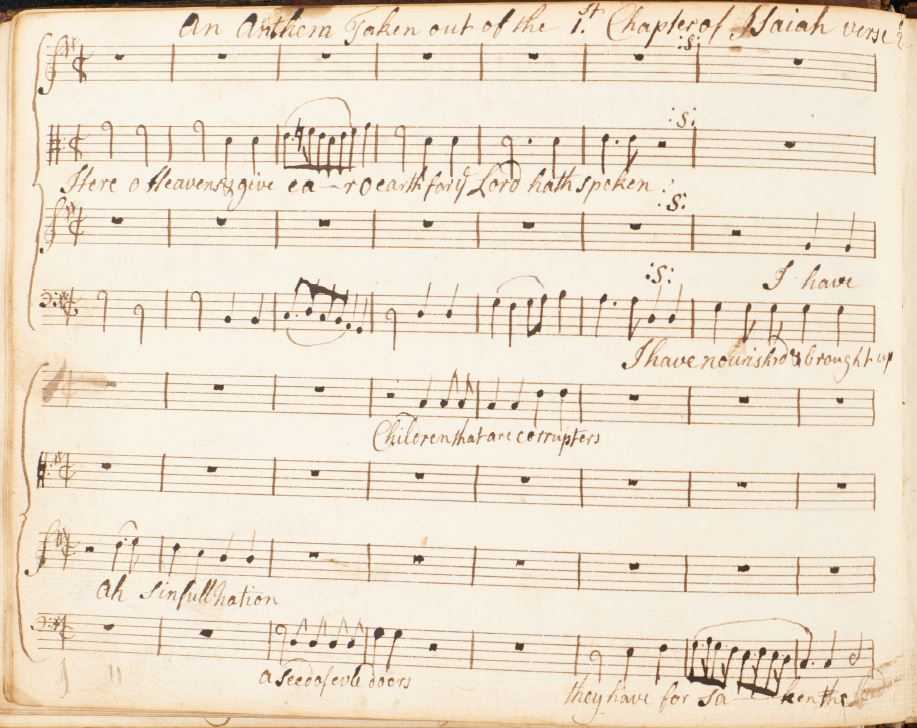 An Anthem Taken out of the 1.st Chapter of Isaiah verse 2
:S:
:S:
Here o Heavens & give ea - r o earth for ye Lord hath spoken :
:S:
I have
:S:
I have nourish'd & brought up
Children that are corrupters
Ah sinfull nation
a seed of evle doers
they have for sa ken the